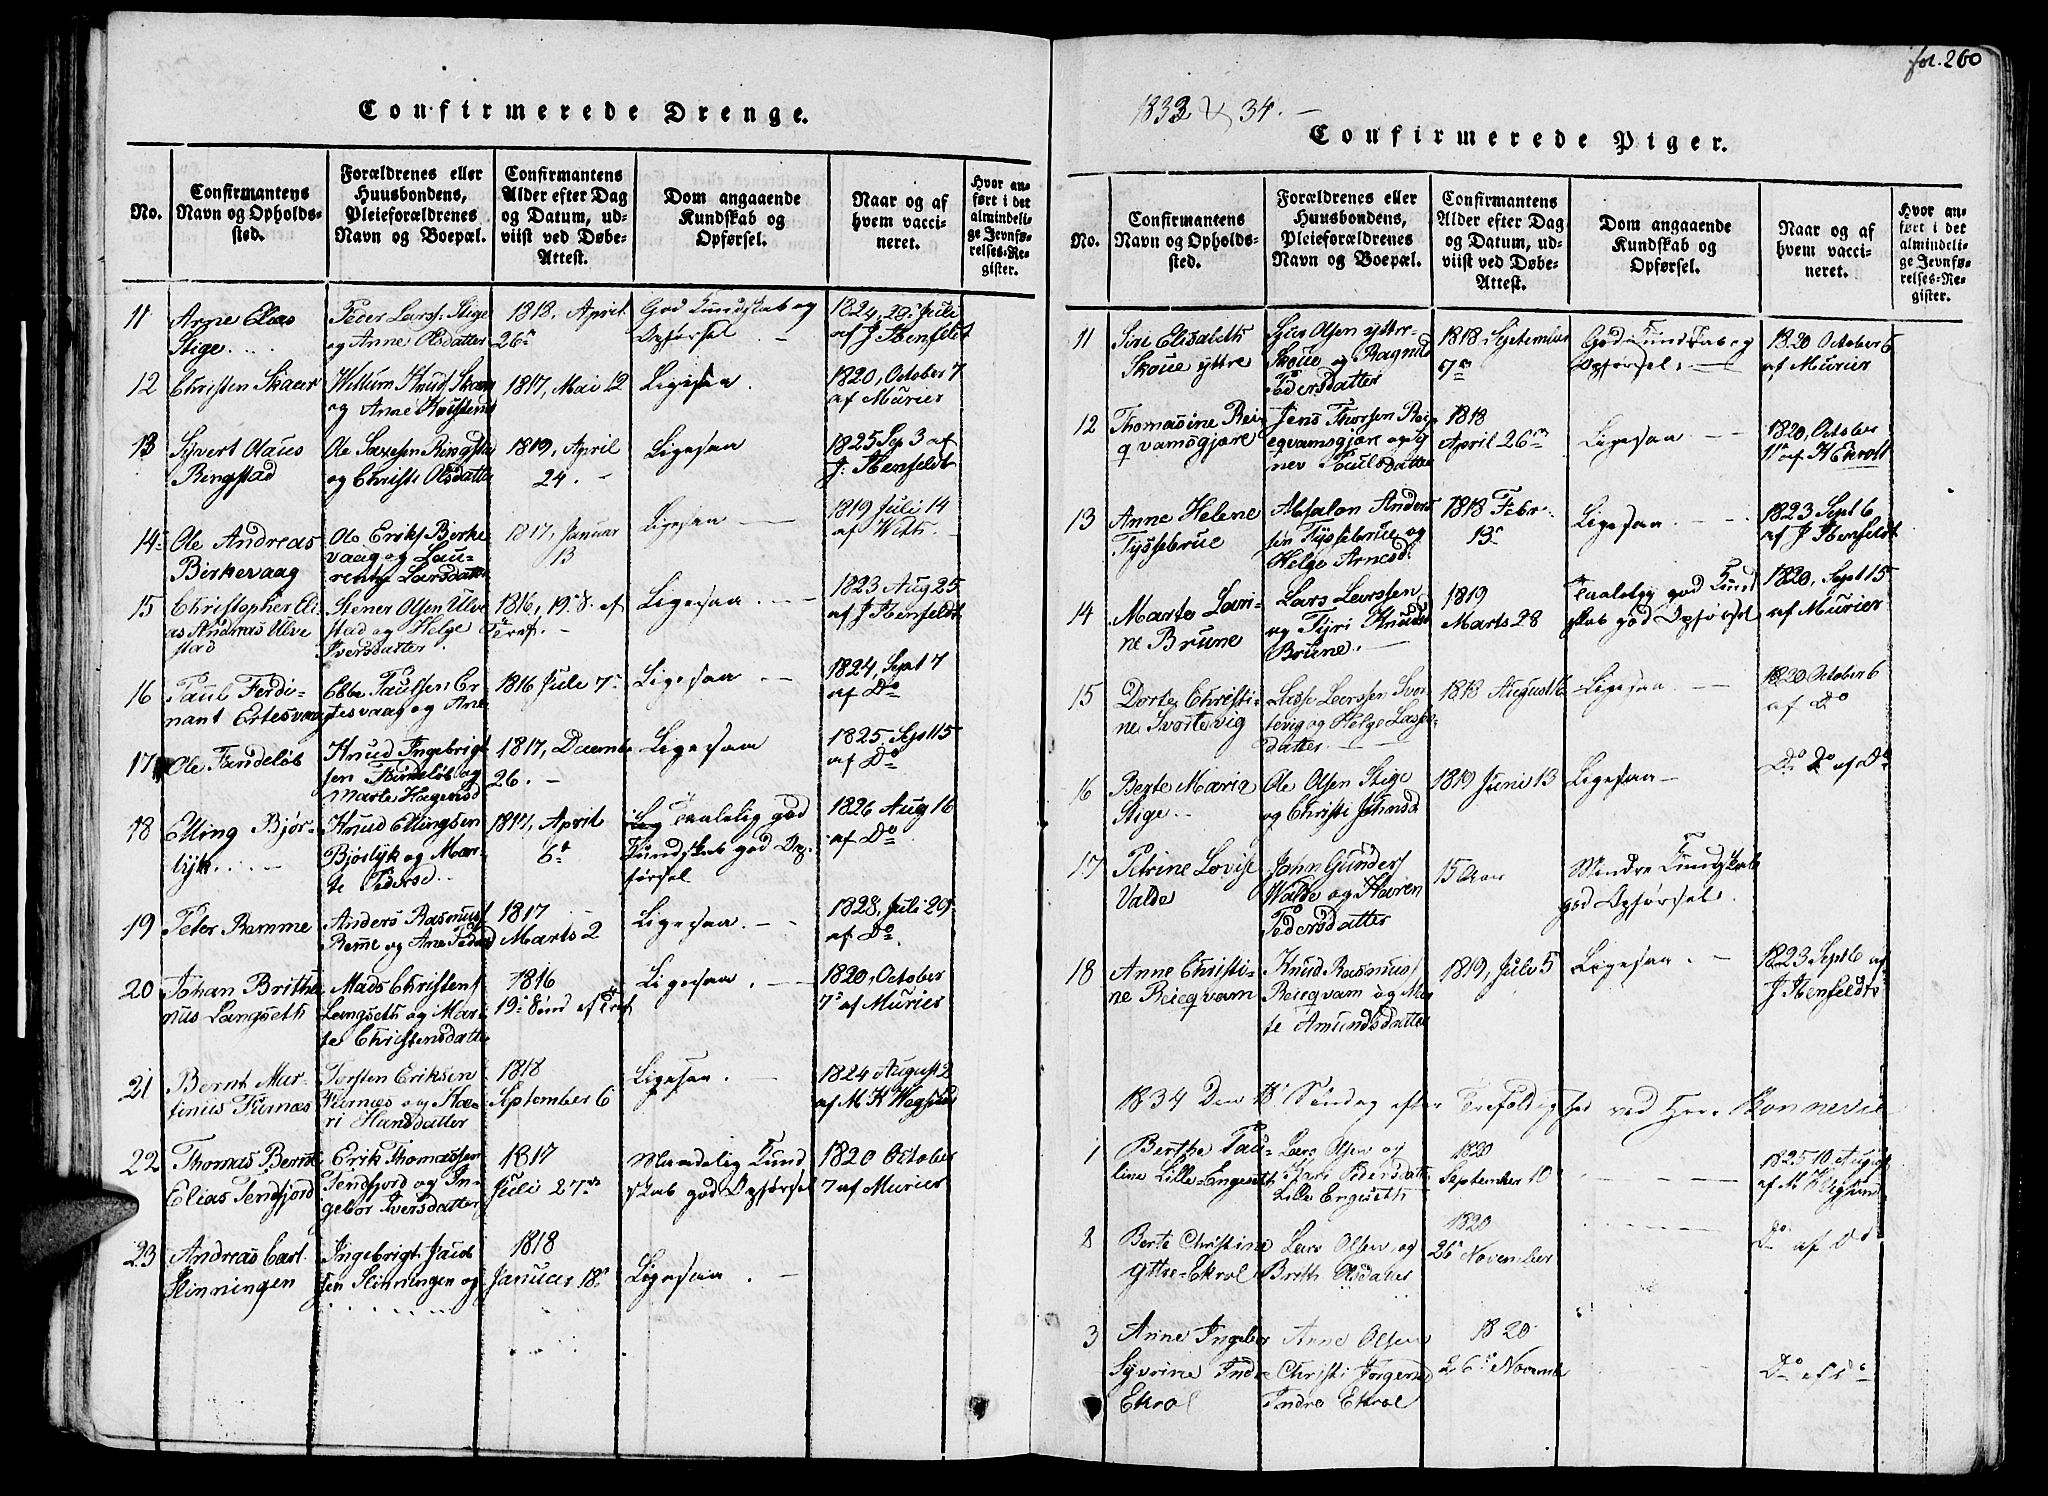 Confirmerede Drenge.
No.
Confirmantens
Navn og Opholds-
sted.
Forældrenes eller
Huusbondens,
Pleieforældrenes
Navn og Boepæl.
Confirmantens
Alder efter Dag
og Datum, ud-
viist ved Døbe-
Attest.
Dom angaaende
Kundskab og
Opførsel.
Naar og af
hvem vacci-
neret.
Hvor an-
ført i det
almindeli-
ge Jevnfø-
relses-Re-
gister.
11
Arne Elias
Stige
Peder Larss. Stige
og Anne Olsdatter
1818, April
26
God Kundskab og
Opførsel
1824, 29 Juli
af J Henfeldt
12
Christen Skaar
og Anne
1817, Mai 12
Ligesaa
1820, October 7
af Murier
13
Syvert Olaus
Ringstad
Ole
og Christi Olsdatter
1819, April
24.
Ligesaa
1825 Sep 3 af
J: Henfeldt
14
Ole Andreas
Birkevaag
Ole Eriks Berke
vaag og Lau-
rentze Larsdatter
1817, Januar
13
Ligesaa
1819 Juli 14
af With
15
Christopher Eli
as Andreas Ulve
stad
Stener Olsen Ulve
stad og Helge
Iversdatter
1816, 19 S. ef
Tref.
Ligesaa
1823 Aug 25
af J Henfeldt
16
Paul Ferdi-
nant Ertesvaag
Ebbe Paulsen Er
tesvaag og Ane
1816 Juli 7
Ligesaa
1824, Sept 7
af Do
17
Ole
Knud Ingebrigt
sen og
Marte
1817, Decemb
26.
Ligesaa
1825 Sept 15
af Do
18
Elling Bjør-
lyk
Knud Ellingsen
Bjørlyk og Mar-
te Pedersd
1817, April
6
Taalelig god
Kundskab god Op-
førsel
1826 Aug 16
af Do
19
Peter Remme
Anders Rasmuss
Reme og Ane Peders
1817
Marts 2
Ligesaa
1828, Juli 29
af Do
20
Johan Brithe
nus Langseth
Mads Christens
Langseth og Mari
te Christensdatter
1816
19 Sønd ef Tref
Ligesaa
1820, October
7 af Murier
21
Bernt Mar-
tinus Furnæs
Torsten Eriksen
Furnæs og Ka-
ri Hansdatter
1818
September 6
Ligesaa
1824 August 2
af M K Wegsund
22
Thomas Bernt
Elias Tenfjord
Erik Thomassen
Tenfjord og In-
gebor Iversdatter
1817
Juli 27
Maadelig Kund
skab god Opførsel
1820 October
7 af Murier
23
Andreas Carl
Slinningen
Ingebrigt Jacob
sen Slinningen og
1818
Januar 18
Ligesaa
fol. 260
1833 & 34.
Confirmerede Piger.
No.
Confirmantens
Navn og Opholds-
sted.
Forældrenes eller
Huusbondens,
Pleieforældrenes
Navn og Boepæl.
Confirmantens
Alder efter Dag
og Datum, ud-
viist ved Døbe-
Attest.
Dom angaaende
Kundskab og
Opførsel.
Naar og af
hvem vacci-
neret.
Hvor an-
ført i det
almindeli-
ge Jevnfø-
relses-Re-
gister.
11
Sire Elisabeth
Skoue yttre
Sjur Olsen yttre-
Skoue og Ragnild
Pedersdatter
1818, September
God Kundskab og
Opførsel
1820 October 6
af Murier
12
Thomasine Rei
qvamsgjære
Jens Thorsen Rei
qvamsgjære og
Paulsdatter
1818
April 26
Ligesaa
1820, October
11 af
13
Anne Helene
Tyssebrue
Absalon Anders
sen Tyssebrue og
Helge Arnesd
1818 Febr
15
Ligesaa
1823 Sept 6
af J Henfeldt
14
Marte Lari-
ne Brune
Lars Larssen
og Tyri Knuds
Brune.
1819
Marts 28
Taalelig god Kund
skab god Opførsel
1820, Sept 15
af Murier
15
Dorte Christi-
ne Svortevig
Lasse Larssen Svor
tevig og Helge Lasse-
datter
1818 August 16
Ligesaa
1820 October 6
af Do
16
Berte Maria
Stige
Ole Olsen Stige
og Christi Johnsd
1819 Juni 13
Ligesaa
Do Do af Do
17
Petrine Lovise
Valde
John Gunders
Valde og Karen
Pedersdatter
15 Aar
Mindre Kundskab
god Opførsel
18
Anne Christi-
ne Reiqvam
Knud Rasmuss
Reiqvam og Mar
te Amundsdatter
1819, Juli 5
Ligesaa
1823 Sept 6 af
J Henfeldt
1834 Den 18 Søndag efter Trefoldighed ved Hr. Konnevie
1
Berthe Pau-
line Lille-Engeseth
Lars Olsen og
Kari Pedersdatt
Lille Engeseth
1820
September 10
1825 10 August
af M K Wegsund
2
Berte Christine
yttre-Ekrol
Lars Olsen og
Brith Olsdatter
1820
26 November
Do af Do
3
Anne Ingebor
Syvrine Indre
Ekrol
Arne Olsen
Christi Jørgensd
Indre Ekrol
1820
26 Novemb
Do af Do